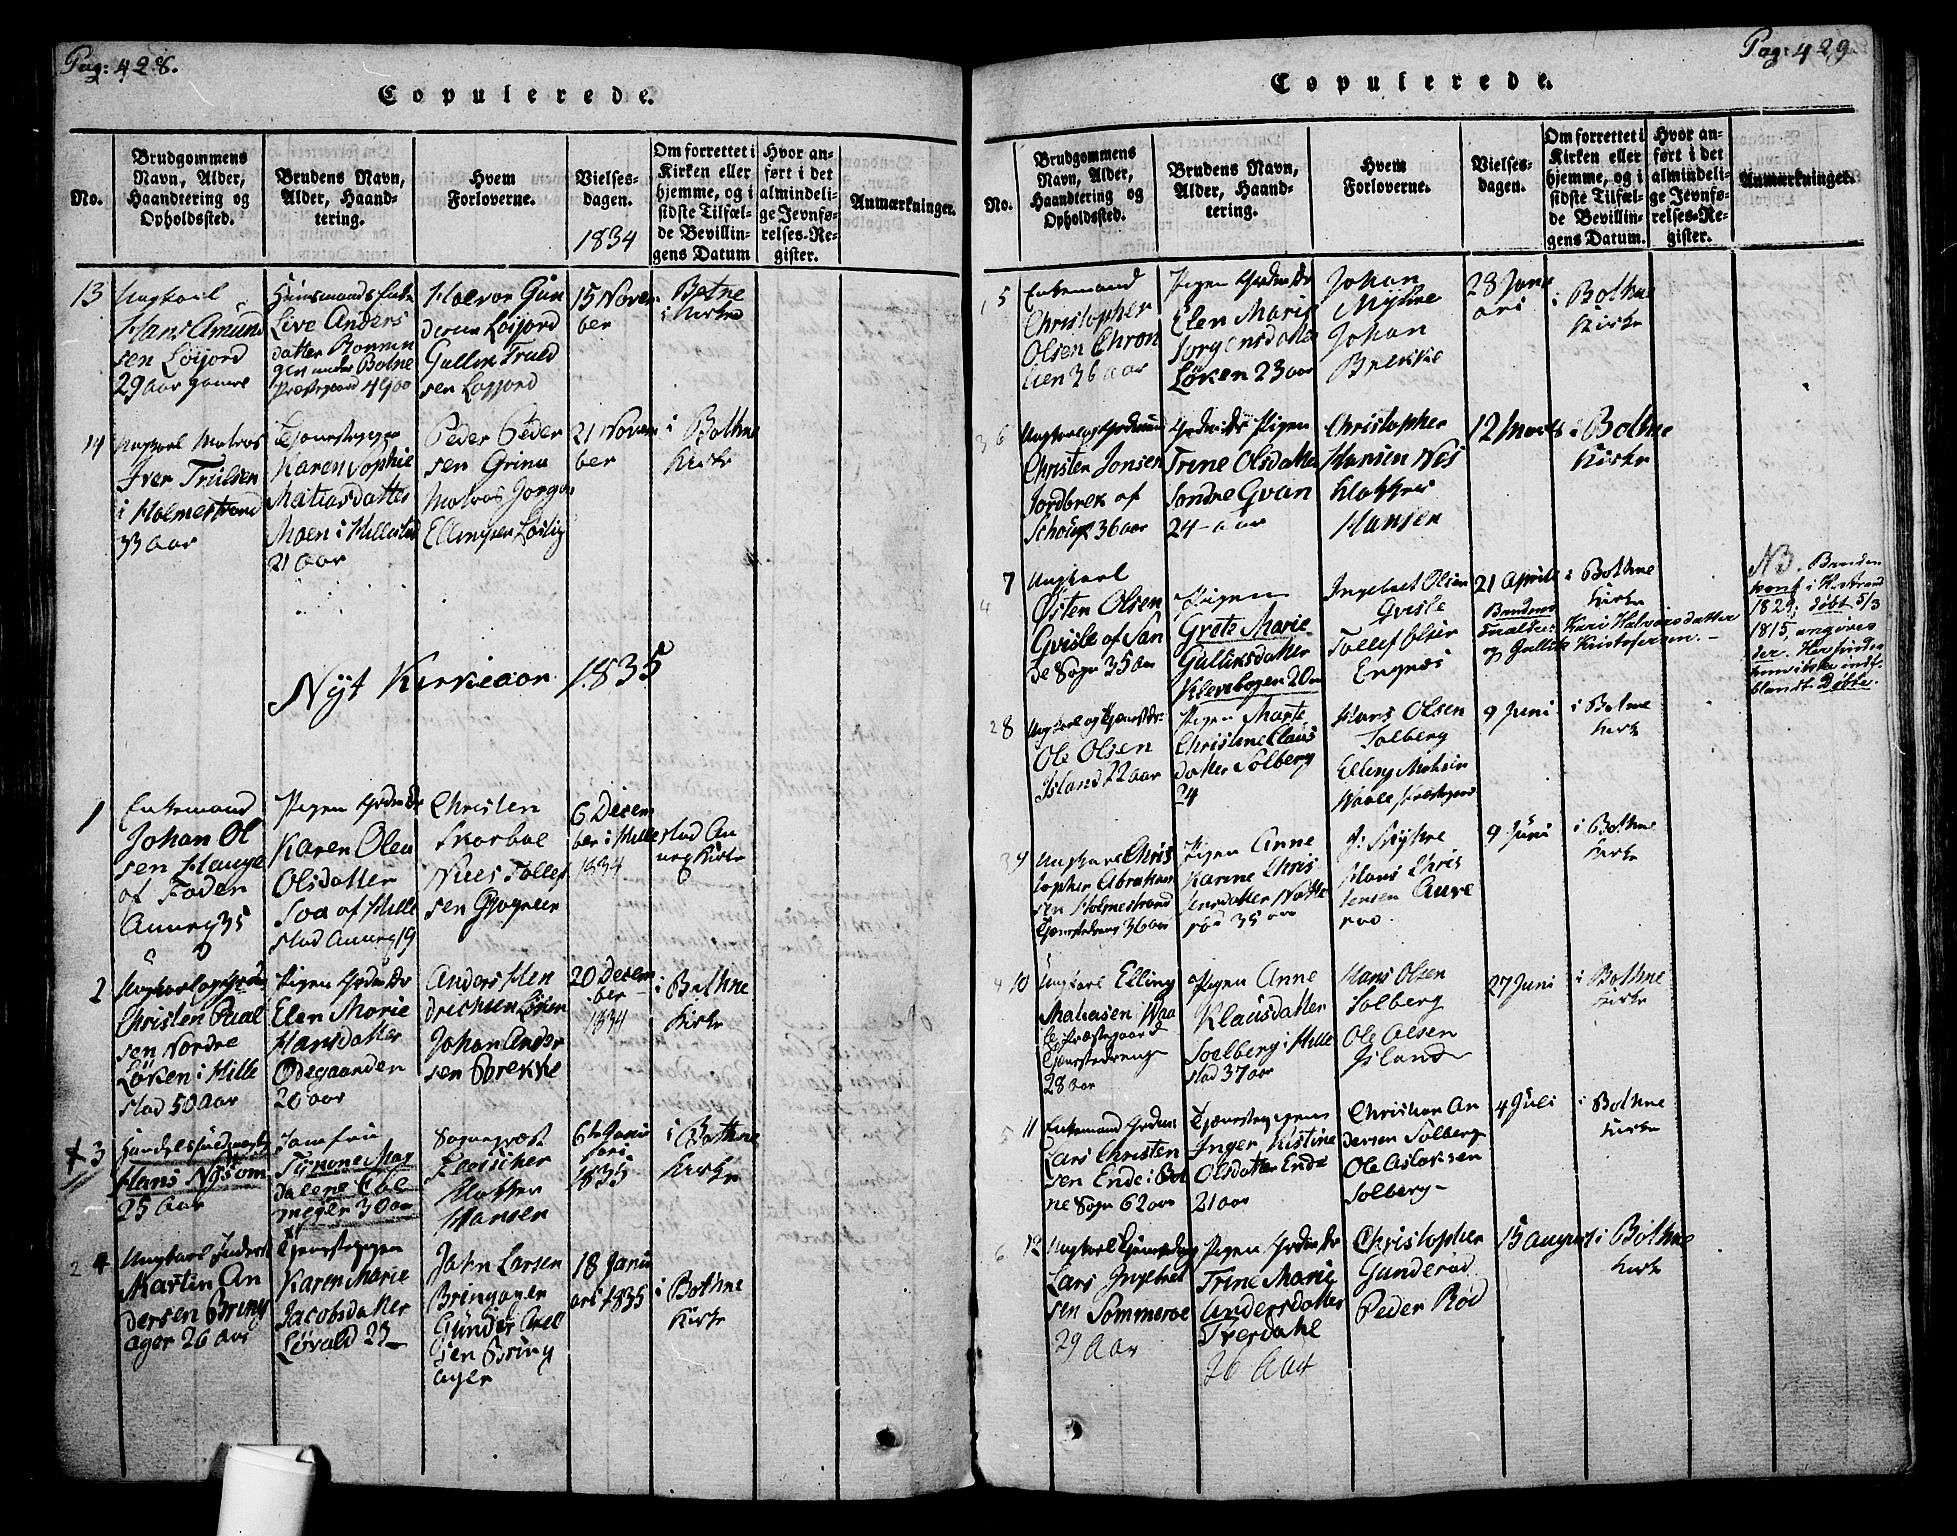 Pag: 428.
Copulerede.
No.
Brudgommens
Navn, Alder,
Haandtering og
Opholdssted.
Brudens Navn,
Alder, Haand-
tering.
Hvem
Forloverne.
Vielses-
dagen.
1834
Om forrettet i
Kirken eller
hjemme, og i
sidste Tilfæl-
de Bevillin-
gens Datum
Hvor an-
ført i det
almindeli-
ge Jevnfø-
relses-Re-
gister.
Anmærkninger.
13
Ungkarl
Hans Amund
sen Löijord
29 aar gamel
Live Anders
datter
under Botne
Præstegaard 49 aar
Halvor Gun
dersen Löijord
Gullik Truls
sen Løijord
15 Novem
ber
Botne
i Kirke
14
Ungkarl Matros
Iver Trulsen
i Holmestrand
33 Aar
Tjenestepige
Karen Sophie
Matiasdatter
Moen i Hillestad
21 aar
Peder Peder
sen Grina
Matros Jørgen
Ellingsen
21 Novem
ber
i Bothne
Kirke
Nyt Kirkeaar 1835
1
Enkemand
Johan Ol
sen Hauge
af Foden
Annex 35
Pigen
Karen Olea
Olsdatter
Soa af Hille
stad Annex 19
Christen
Skorbal
Niels Tollef
sen
6 Decem
ber i Hille
1834
stad An
nex Kirke
2
Christen Paal
sen Nordre
Löken i Hille
stad 50 Aar
Pigen
Elen Marie
Hansdatter
Ödegaarden
20 aar
Anders Hen
drichsen Löken
Johan Ander
sen Brekke
20 Decem
ber
1834
i Bothne
Kirke
3
Hans Nysom
25 Aar
Jomfru
Mag
dalene Col
30 aar
Sogneprest
Hansen
6te Janu
ari
1835
i Bothne
Kirke
4
Ungkarl
Martin An
dersen Bring
ager 26 aar
Tjenestepigen
Karen Marie
Jacobsdatter
Lövald 23
John Larsen
Bringager
Günder Axel
sen Bring
ager
18 Janu
ari 1835
i Bothne
Kirke
Pag: 429
Copulerede.
No.
Brudgommens
Navn, Alder,
Haandtering og
Opholdssted.
Brudens Navn,
Alder, Haand-
tering.
Hvem
Forloverne.
Vielses-
dagen.
Om forrettet i
Kirken eller
hjemme, og i
sidste Tilfæl-
de Bevillin-
gens Datum.
Hvor an-
ført i det
almindeli-
ge Jevnfø-
relses-Re-
gister.
Anmærkninger.
5
Enkemand
Christopher
Olsen Chron
lien 36 aar
Pigen
Elen Marie
Jørgensdatter
Löken 23 aar
Johan
Myhre
Johan
Brekke
28 Janu
ari
i Bothne
Kirke
6
Christen Jonsen
Jordbrek af
36 aar
Pigen
Trine Olsdatter
Søndre Gran
24 aar
Christopher
Hansen Nes
Hansen
12 Marts
i Bothne
Kirke
7
Ungkarl
Østen Olsen
Grisle af San
de Sogn 35 aar
Pigen
Grete Marie
Gulliksdatter
Klevebogen 20 aar
Ingebret Olsen
Grisle
Tollef Olsen
Engnes
21 April
Brudens
Forældre:
i Bothne
Kirke
Kari Halvorsdatter
og Gullik Kristofersen.
NB. Bruden
konf. i H.strand
1829, døbt 5/3
1815, angives
der. Her findes
hun ikke indf.
blandt Døbte.
8
Ungkarl og Tjenestdr.
Ole Olsen
Island 22 aar
Pigen Marte
Christine Claus
datter Solberg
24
Hans Olsen
Solberg
Elling Mathisen
Waale Præstegaard
9 Juni
i Botne
Kirke
Ungkarl Chris
topher Abraham
sen Holmestrand
Tjenestedreng 36 aar
Pigen Anne
Karine Chris
tensdatter
35 aar
J: Myhre
Hans Chris
tensen Aure
rød.
9 Juni
i Bothne
Kirke
10
Ungkarl Elling
Mathiasen Waa
le Præstegaard
Tjenestedreng
28 aar
Pigen Anne
Klausdatter
Soelberg i Hille
stad 37 aar
Hans Olsen
Solberg
Ole Olsen
Island
27 Juni
i Bothne
Kirke
11
Enkemand
Lars Christen
sen Ende i Bot
ne Sogn 62 aar
Tjenestepigen
Inger Kistine
Olsdatter Ende
21 aar
Christian An
dersen Solberg
Ole Aslaksen
Solberg
4 Juli
i Bothne
Kirke
12
Ungkarl Tjenestedreng
Lars Ingebret
sen Sommeroe
29 Aar
Pigen
Trine Marie
Andersdatter
Tverdahl
26 Aar
Christopher
Gunderød
Peder Rød
15 August
i Bothne
Kirke